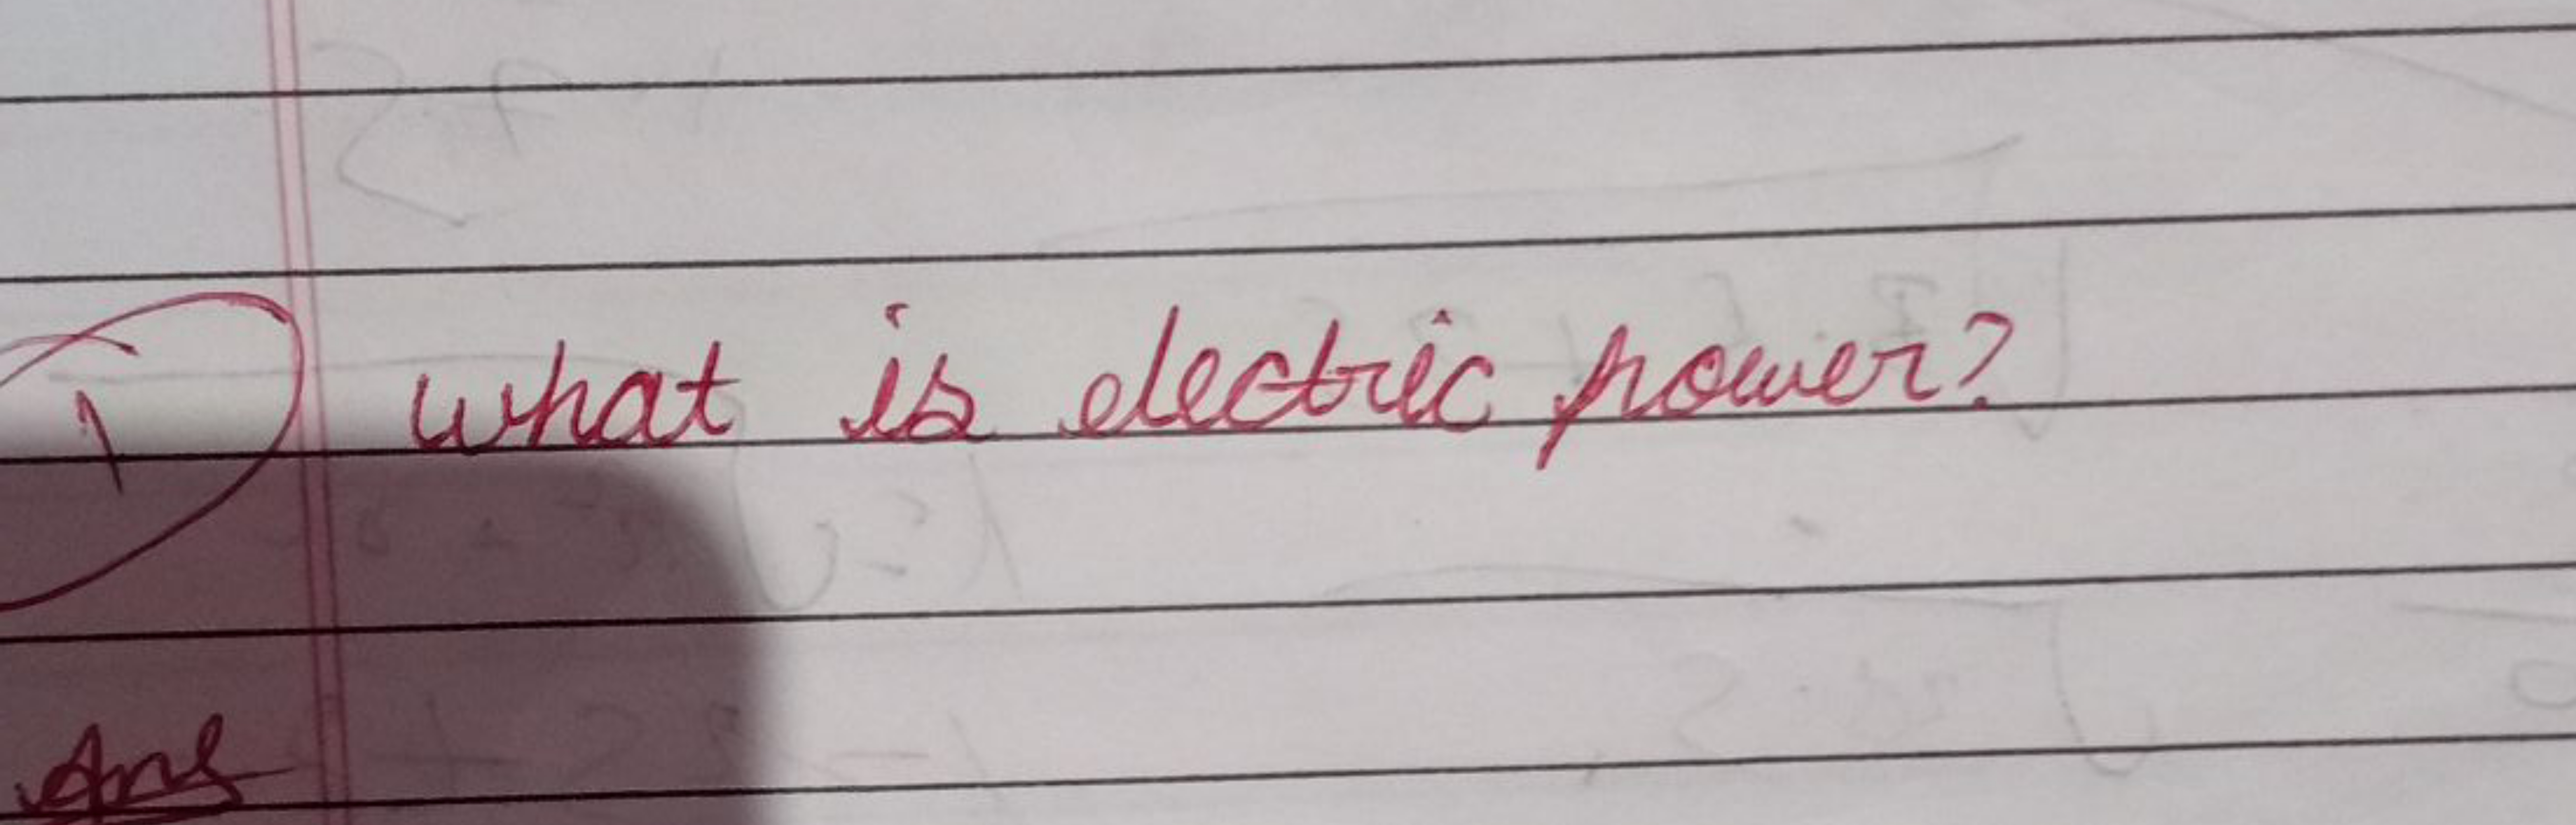 1 what is electric power?
Ans